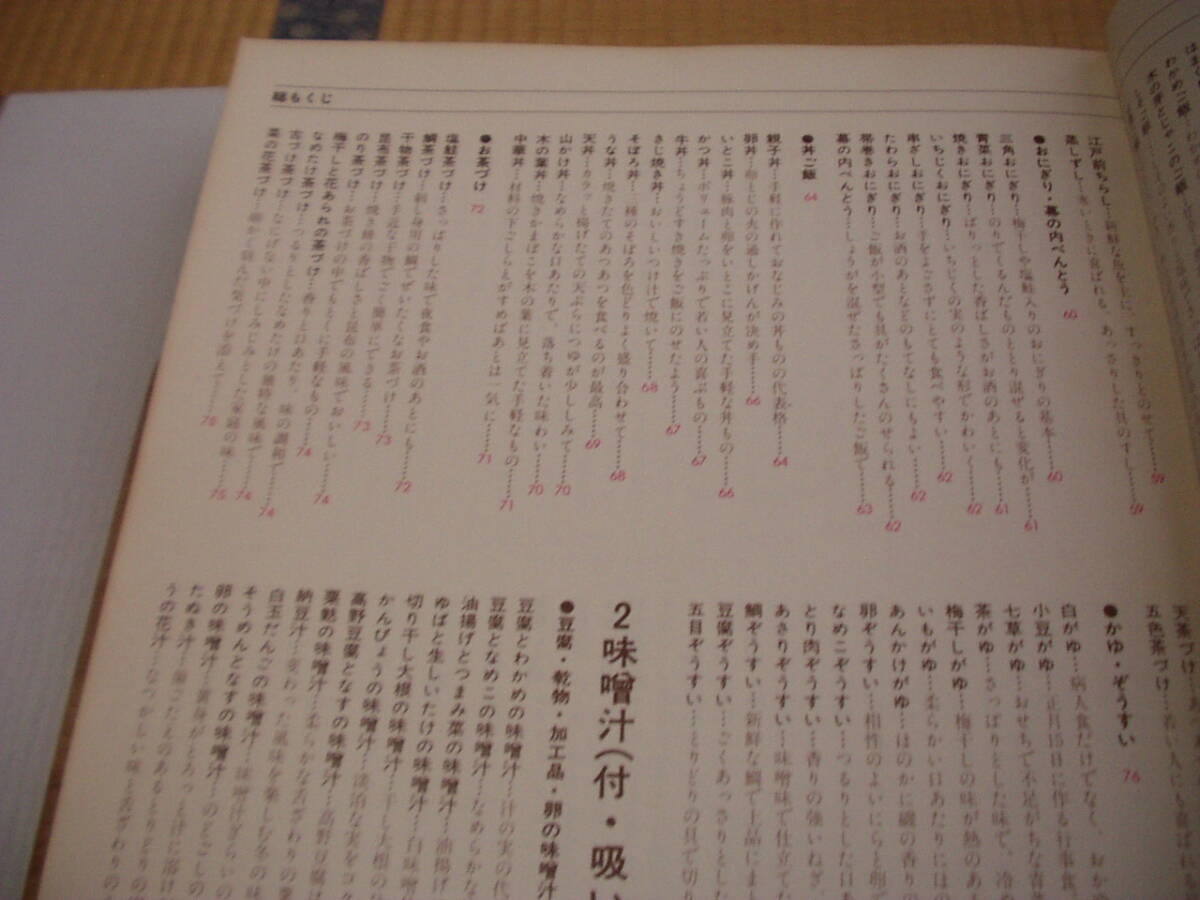 総もくじ
江戸前ちらし…新鮮な魚を上に、すっきりとのせて……59
蒸しずし…寒いときに喜ばれる、あっさりした具のすし……59
●おにぎり・幕の内べんとう 60
三角おにぎり…梅干しや塩鮭入りのおにぎりの基本……60
青菜おにぎり…のりでくるんだものととり混ぜると変化が……61
焼きおにぎり…ぱりっとした香ばしさがお酒のあとにも……61
いちじくおにぎり…いちじくの実のような形でかわいく……62
串ざしおにぎり…手をよごさずにとても食べやすい……62
たわらおにぎり…お酒のあとなどのもてなしにもよい……62
帯巻きおにぎり…ご飯が小型でも具がたくさんのせられる……62
幕の内べんとう…しょうがを混ぜたさっぱりしたご飯で……63
●丼ご飯 64
親子丼…手軽に作れておなじみの丼ものの代表格……64
卵丼…卵とじの火の通しかげんが決め手……66
いとこ丼…豚肉と卵をいとこに見立てた手軽な丼もの……66
かつ丼…ボリュームたっぷりで若い人の喜ぶもの……67
牛丼…ちょうどすき焼きをご飯にのせたよう……67
きじ焼き丼…おいしいつけ汁で焼いて……68
そぼろ丼…三種のそぼろを色どりよく盛り合わせて……68
うな丼…焼きたてのあつあつを食べるのが最高……69
天丼…カラッと揚げたての天ぷらにつゆが少ししみて……70
山かけ丼…なめらかな口あたりで、落ち着いた味わい……70
木の葉丼…焼きかまぼこを木の葉に見立てた手軽なもの……71
中華丼…材料の下ごしらえがすめばあとは一気に……71
●お茶づけ 72
塩鮭茶づけ…さっぱりした味で夜食やお酒のあとにも……72
鯛茶づけ…刺し身用の鯛でぜいたくなお茶づけ……73
干物茶づけ…手近な干物でごく簡単にできる……73
昆布茶づけ…焼き餅の香ばしさと昆布の風味でおいしい……74
のり茶づけ…お茶づけの中でもとくに手軽なもの……74
梅干しと花あられの茶づけ…香りと口あたり、味の調和……74
なめたけ茶づけ…つるりとしたなめたけの独特な風味……74
古づけ茶づけ…なにげない中にしみじみとした家庭の味……75
菜の花茶づけ…細かく刻んだ菜づけを添えて……75
天茶づけ
五色茶づけ…若い人にも喜ばれる
●かゆ・ぞうすい 76
白がゆ…病人食だけでなく、おかゆ
小豆がゆ…正月15日に作る行事食
七草がゆ…おせちで不足がちな青菜
茶がゆ…さっぱりとした味で、冷め
梅干しがゆ…梅干しの味が熱のあ
いもがゆ…柔らかい口あたりにほの
あんかけがゆ…ほのかに磯の香りの
卵ぞうすい…相性のよいにらと卵で
なめこぞうすい…つるりとした口ま
とり肉ぞうすい…香りの強いねぎ
あさりぞうすい…味噌味で仕立てた
鯛ぞうすい…新鮮な鯛で上品にまと
豆腐ぞうすい…ごくあっさりとした
五目ぞうすい…とりどりの具で切り
2 味噌汁(付・吸い
●豆腐・乾物・加工品・卵の味噌汁
豆腐とわかめの味噌汁…汁の実の代
豆腐となめこの味噌汁…なめらかな
油揚げとつまみ菜の味噌汁…油揚げ
ゆばと生しいたけの味噌汁…白味噌
切り干し大根の味噌汁…干し大根の
かんぴょうの味噌汁…淡泊な実をコク
高野豆腐となすの味噌汁…高野豆腐は
粟麩の味噌汁…柔らかな舌ざわりの粟
納豆汁…変わった風味を楽しむ冬の味
白玉だんごの味噌汁
そうめんとなすの味噌汁…のどごしの
卵の味噌汁…黄身がとろっと汁に溶け
たぬき汁…歯ごたえのあるとりどりの
うの花汁…なつかしい味と舌ざわりの